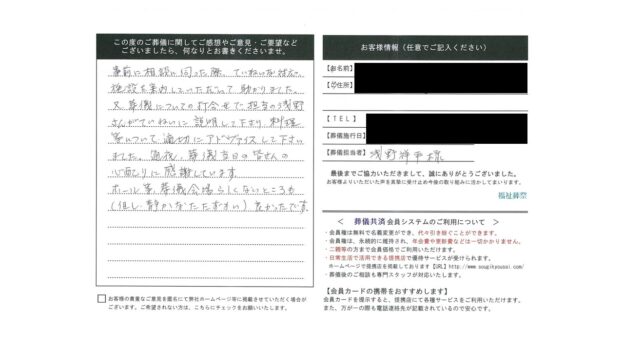 この度のご葬儀に関してご感想やご意見・ご要望など
ございましたら、何なりとお書きくださいませ。
事前に相談に伺った際、ていねいな対応、
施設を案内していただいて助かりました。
又、葬儀についての打合せで、担当の浅野
さんがていねいに説明して下さり、料理
等について適切にアドヴァイスして下さい
ました。通夜、葬儀当日の皆さんの
心配りに感謝しています。
ホール等、葬儀会場らしくないところが
(但し、静かなたたずまい)良かったです。
お客様の貴重なご意見を匿名にて弊社ホームページ等に掲載させていただく場合が
ございます。ご希望されない方は、こちらにチェックをお願いいたします。
お客様情報(任意でご記入ください)
【お名前】
【ご住所】
【TEL】
【葬儀施行日】
【葬儀担当者】浅野祥平様
最後までご協力いただきまして、誠にありがとうございました。
お客様よりいただいた声を真摯に受け止め今後の取り組みに活かしてまいります。
福祉葬祭
< 葬儀共済会員システムのご利用について >
・会員権は無料で名義変更ができ、代々引き継ぐことができます。
・会員権は、永続的に維持され、年会費や更新費などは一切かかりません。
・二親等の方まで会員価格でご利用いただけます。
・日常生活で活用できる提携店で優待サービスが受けられます。
ホームページで提携店を掲載しております【URL】http://www.sougikyousai.com/
・葬儀後のご相談も専門スタッフが対応いたします。
【会員カードの携帯をおすすめします】
会員カードを提示すると、提携店にて各種サービスをご利用いただけます。
また、万が一の際も電話連絡先が記載されているので安心です。